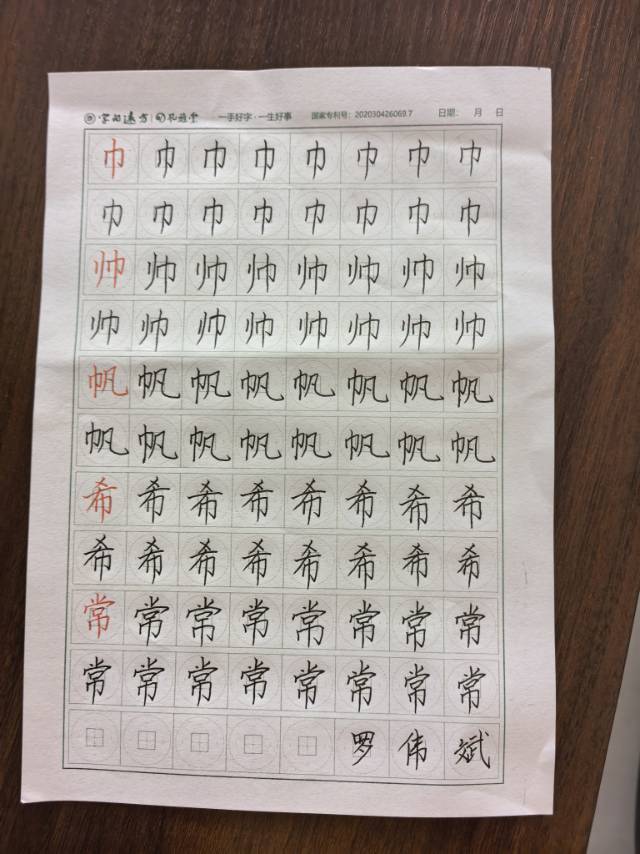 字的远方 孔题堂 一手好字·一生好事 国家专利号:202030426069.7 日期: 月 日
巾 巾 巾 巾 巾 巾 巾 巾
巾 巾 巾 巾 巾 巾 巾 巾
帅 帅 帅 帅 帅 帅 帅 帅
帅 帅 帅 帅 帅 帅 帅 帅
帆 帆 帆 帆 帆 帆 帆 帆
帆 帆 帆 帆 帆 帆 帆 帆
希 希 希 希 希 希 希 希
希 希 希 希 希 希 希 希
常 常 常 常 常 常 常 常
常 常 常 常 常 常 常 常
罗 伟 斌